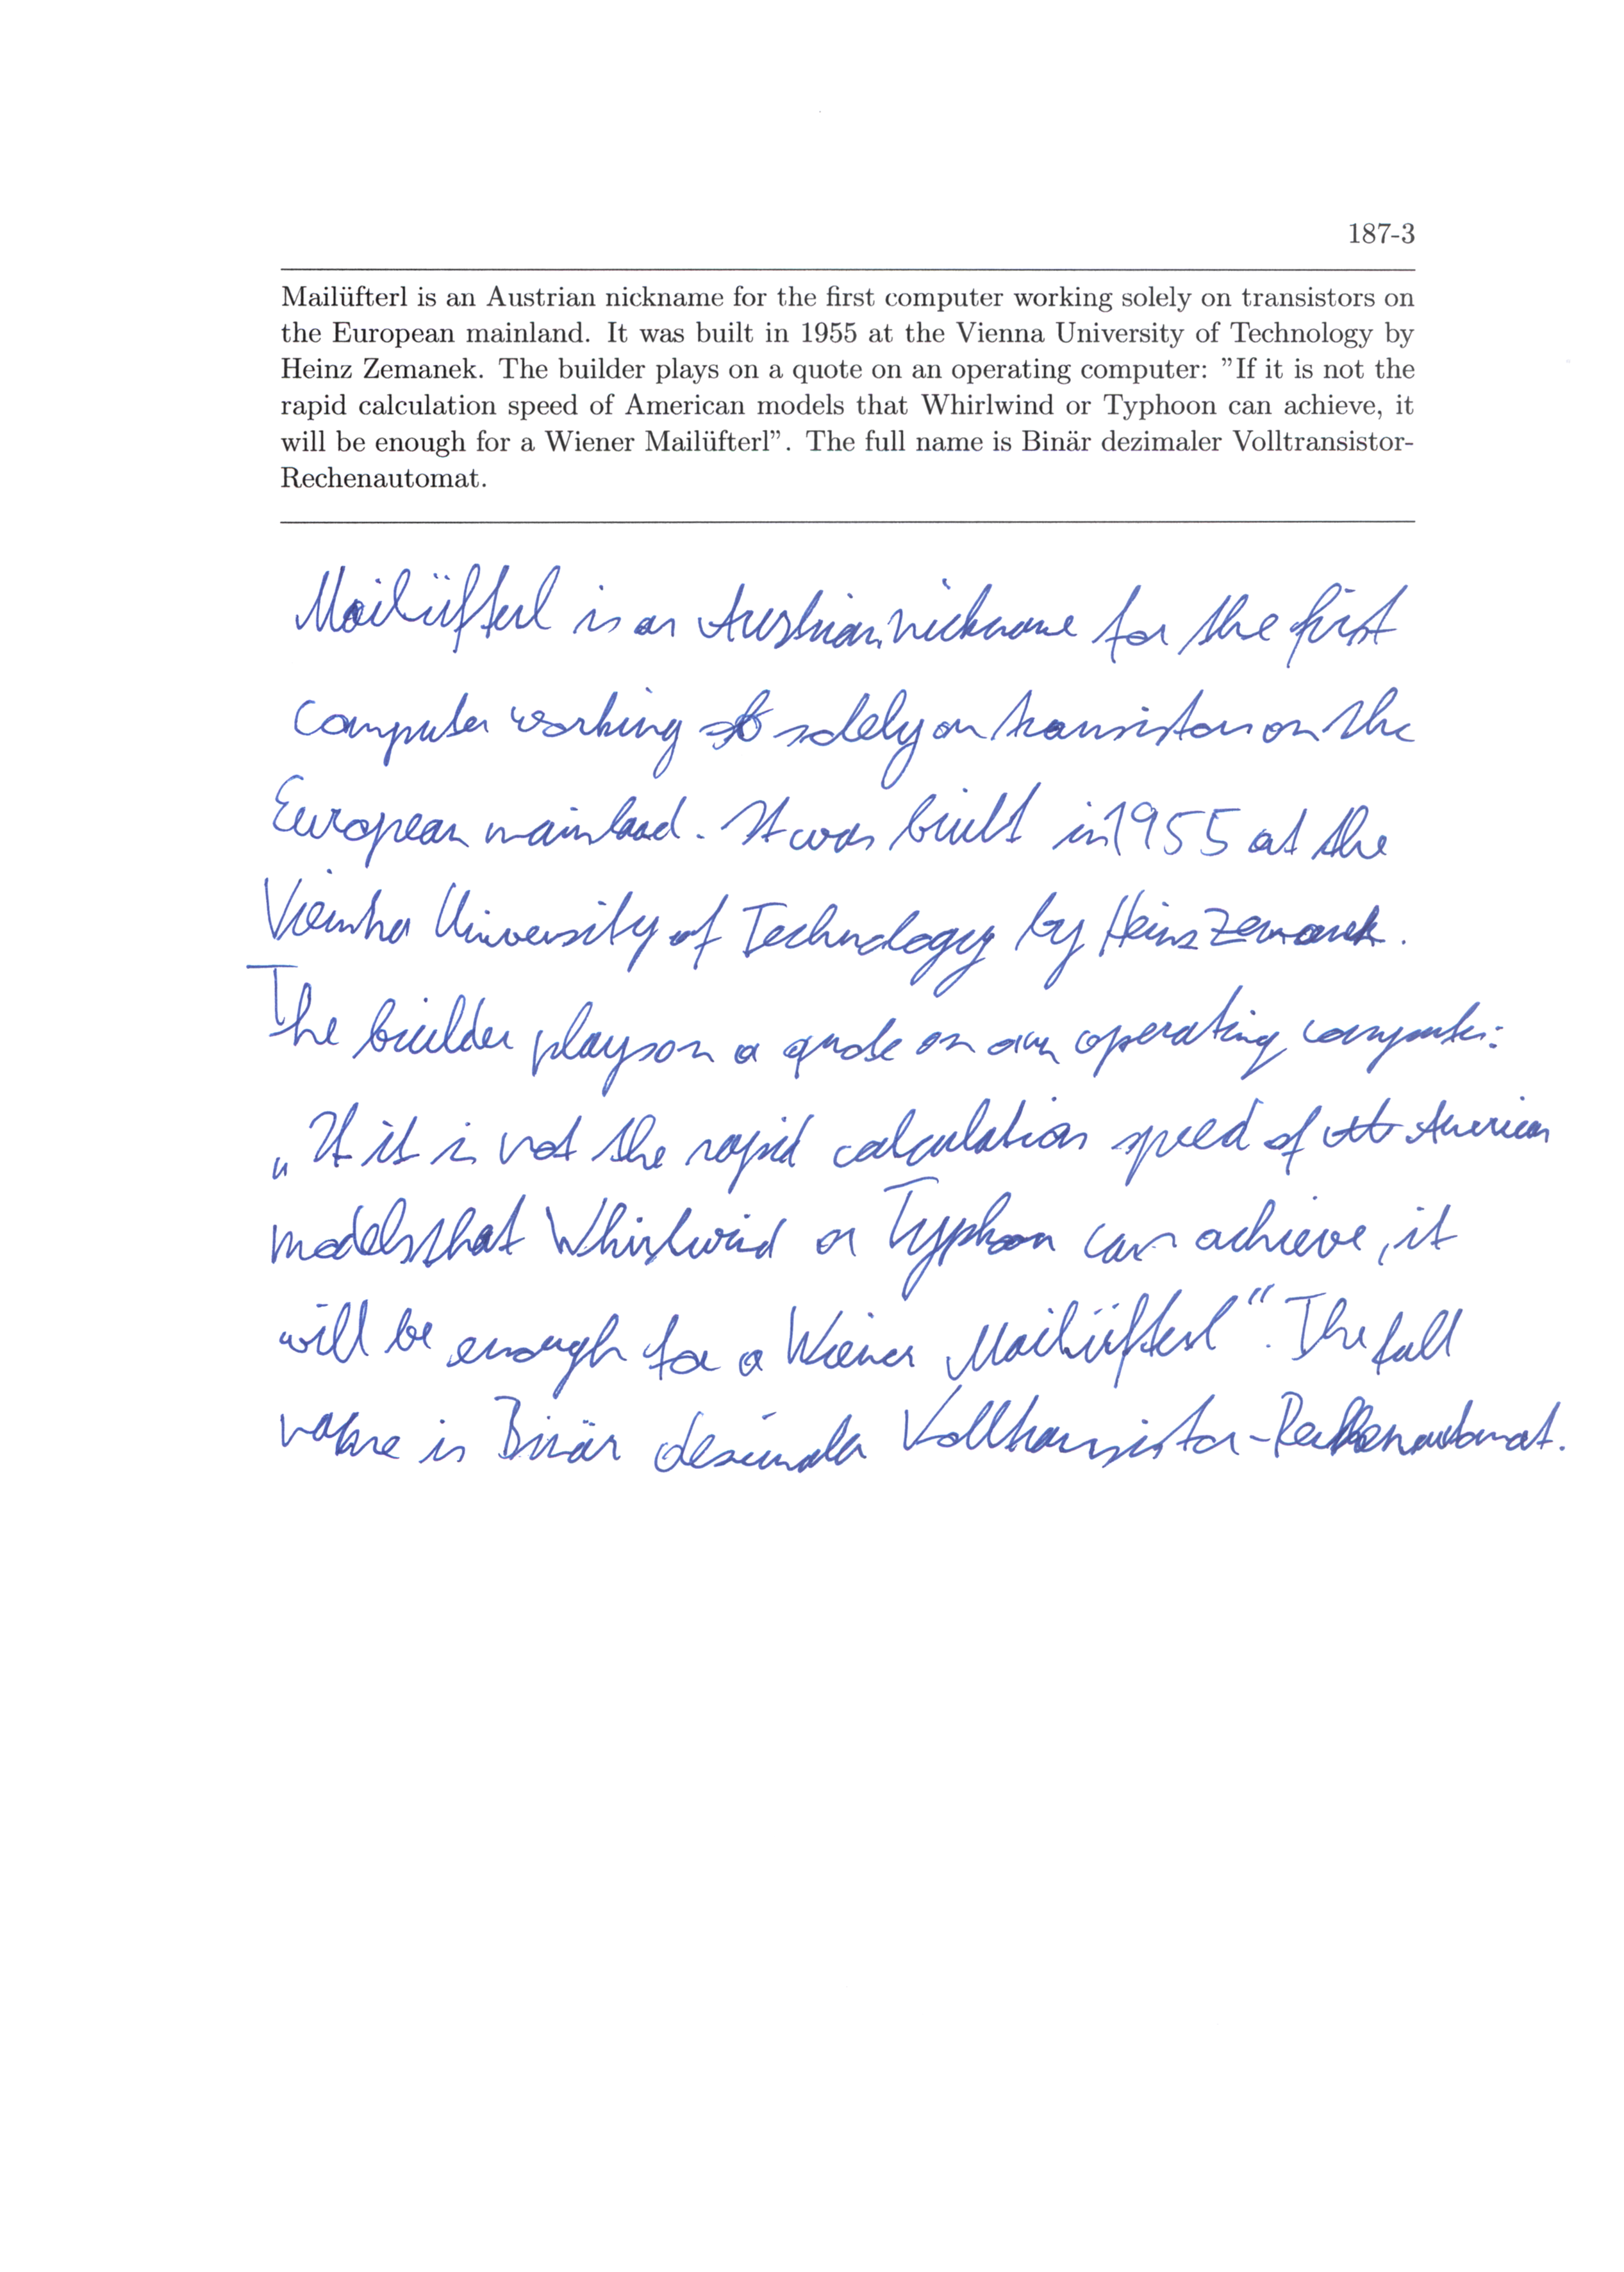 187-3
Mailüfterl is an Austrian nickname for the first computer working solely on transistors on
the European mainland. It was built in 1955 at the Vienna University of Technology by
Heinz Zemanek. The builder plays on a quote on an operating computer: ”If it is not the
rapid calculation speed of American models that Whirlwind or Typhoon can achieve, it
will be enough for a Wiener Mailüfterl”. The full name is Binär dezimaler Volltransistor-
Rechenautomat.
Mailüfterl is an Austrian nickname for the first
computer working solely on transistors on the
European mainland. It was built in 1955 at the
Vienna University of Technology by Heinz Zemanek.
The builder plays on a quote on an operating computer:
„If it is not the rapid calculation speed of American
models that Whirlwind or Typhoon can achieve, it
will be enough for a Wiener Mailüfterl“. The full
name is Binär dezimaler Volltransistor-Rechenautomat.